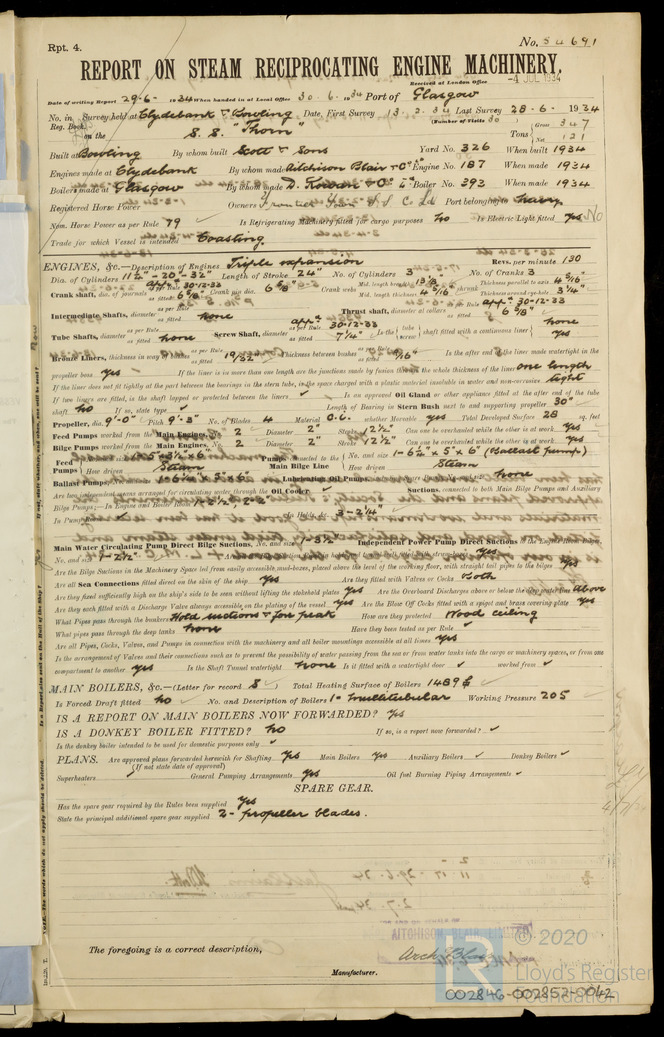 Rpt. 4.
No. 54691
REPORT ON STEAM RECIPROCATING ENGINE MACHINERY.
Received at London Office -4 JUL 1934
Date of writing Report 29-6-1934 When handed in at Local Office 30.6.1934 Port of Glasgow
No. in Reg. Book. Survey held at Clydebank & Bowling Date, First Survey 13.2.34 Last Survey 28-6-1934
(Number of Visits 30)
on the S.S. "Thorn" Tons Gross 347 Net 121
Built at Bowling By whom built Scott & Sons Yard No. 326 When built 1934
Engines made at Clydebank By whom made Aitchison Blair & Co Ld Engine No. 187 When made 1934
Boilers made at Glasgow By whom made D. Rowan & Co Ld Boiler No. 393 When made 1934
Registered Horse Power Owners S.S. Co Ld Port belonging to
Nom. Horse Power as per Rule 79 Is Refrigerating Machinery fitted for cargo purposes no Is Electric Light fitted yes
Trade for which Vessel is intended Coasting
ENGINES, &c.—Description of Engines Triple expansion Revs. per minute 130
Dia. of Cylinders 11½"-20"-32" Length of Stroke 24" No. of Cylinders 3 No. of Cranks 3
Crank shaft, dia. of journals as per Rule app. 30-12-33 as fitted 6⅝" Crank pin dia. 6⅝" Crank webs Mid. length breadth 13⅛" Mid. length thickness 4 5/16" shrunk Thickness parallel to axis 4 5/16" Thickness around eye-hole 3¼"
Intermediate Shafts, diameter as per Rule as fitted none Thrust shaft, diameter at collars as per Rule app. 30-12-33 as fitted 6⅝"
Tube Shafts, diameter as per Rule as fitted none Screw Shaft, diameter as per Rule app. 30-12-33 as fitted 7¼" Is the tube screw shaft fitted with a continuous liner none yes
Bronze Liners, thickness in way of bushes as per Rule as fitted 19/32" Thickness between bushes as per Rule as fitted 9/16" Is the after end of the liner made watertight in the
propeller boss yes If the liner is in more than one length are the junctions made by fusion through the whole thickness of the liner one length
If the liner does not fit tightly at the part between the bearings in the stern tube, is the space charged with a plastic material insoluble in water and non-corrosive tight
If two liners are fitted, is the shaft lapped or protected between the liners ✓ Is an approved Oil Gland or other appliance fitted at the after end of the tube
shaft no If so, state type ✓ Length of Bearing in Stern Bush next to and supporting propeller 30"
Propeller, dia. 9'-0" Pitch 9'-3" No. of Blades 4 Material C.I. whether Moveable yes Total Developed Surface 28 sq. feet
Feed Pumps worked from the Main Engines, No. 2 Diameter 2" Stroke 12½" Can one be overhauled while the other is at work yes
Bilge Pumps worked from the Main Engines, No. 2 Diameter 2" Stroke 12½" Can one be overhauled while the other is at work yes
Feed Pumps How driven Steam Pumps connected to the Main Bilge Line No. and size 1-6½" x 5" x 6" (Ballast pump) How driven Steam
Ballast Pumps, 1-6½" x 5" x 6" Lubricating Oil Pumps, none
Are two independent means arranged for circulating water through the Oil Cooler Suctions, connected to both Main Bilge Pumps and Auxiliary
Bilge Pumps;—In Engine and Boiler Room
In Holds, &c. 3-2¼"
Main Water Circulating Pump Direct Bilge Suctions, No. and size 1-3½" Independent Power Pump Direct Suctions to the Engine Room Bilges,
No. and size yes
Are the Bilge Suctions in the Machinery Space led from easily accessible mud-boxes, placed above the level of the working floor, with straight tail pipes to the bilges yes
Are all Sea Connections fitted direct on the skin of the ship yes Are they fitted with Valves or Cocks both
Are they fixed sufficiently high on the ship's side to be seen without lifting the stokehold plates yes Are the Overboard Discharges above or below the deep water line above
Are they each fitted with a Discharge Valve always accessible on the plating of the vessel yes Are the Blow Off Cocks fitted with a spigot and brass covering plate yes
What Pipes pass through the bunkers Hold suctions & fore peak How are they protected Wood ceiling
What pipes pass through the deep tanks none Have they been tested as per Rule ✓
Are all Pipes, Cocks, Valves, and Pumps in connection with the machinery and all boiler mountings accessible at all times yes
Is the arrangement of Valves and their connections such as to prevent the possibility of water passing from the sea or from water tanks into the cargo or machinery spaces, or from one
compartment to another yes Is the Shaft Tunnel watertight none Is it fitted with a watertight door ✓ worked from ✓
MAIN BOILERS, &c.—(Letter for record S) Total Heating Surface of Boilers 1489
Is Forced Draft fitted no No. and Description of Boilers 1- multitubular Working Pressure 205
IS A REPORT ON MAIN BOILERS NOW FORWARDED? yes
IS A DONKEY BOILER FITTED? no If so, is a report now forwarded? ✓
Is the donkey boiler intended to be used for domestic purposes only ✓
PLANS. Are approved plans forwarded herewith for Shafting yes Main Boilers yes Auxiliary Boilers ✓ Donkey Boilers ✓
(If not state date of approval)
Superheaters ✓ General Pumping Arrangements yes Oil fuel Burning Piping Arrangements ✓
SPARE GEAR.
Has the spare gear required by the Rules been supplied yes
State the principal additional spare gear supplied 2- propeller blades.
AITCHISON BLAIR LIMITED
The foregoing is a correct description,
Arch Blair
Manufacturer.
© 2020
Lloyd's Register
Foundation
002846-002852-0042